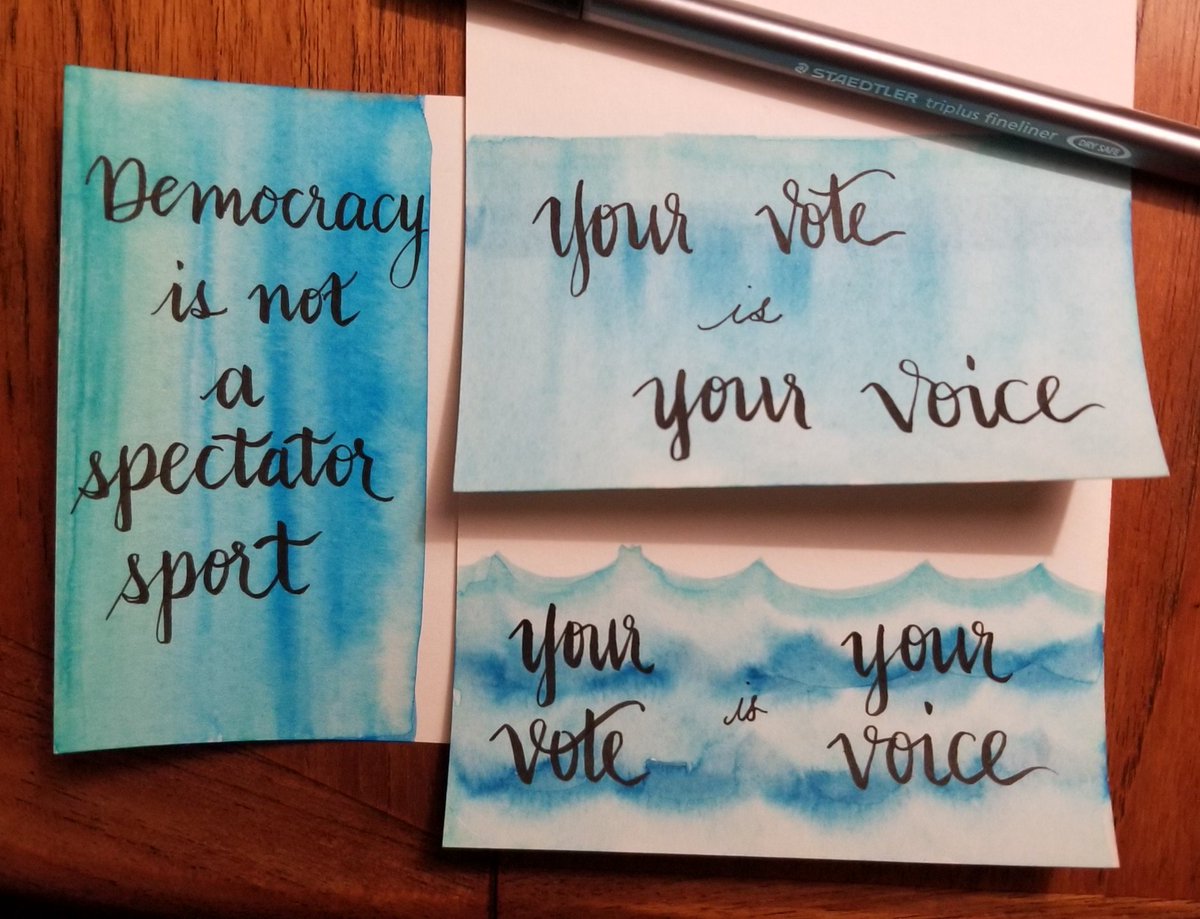 STAEDTLER triplus fineliner DRY SAFE
Democracy
is not
a
spectator
sport
your vote
is
your voice
your your
vote is voice